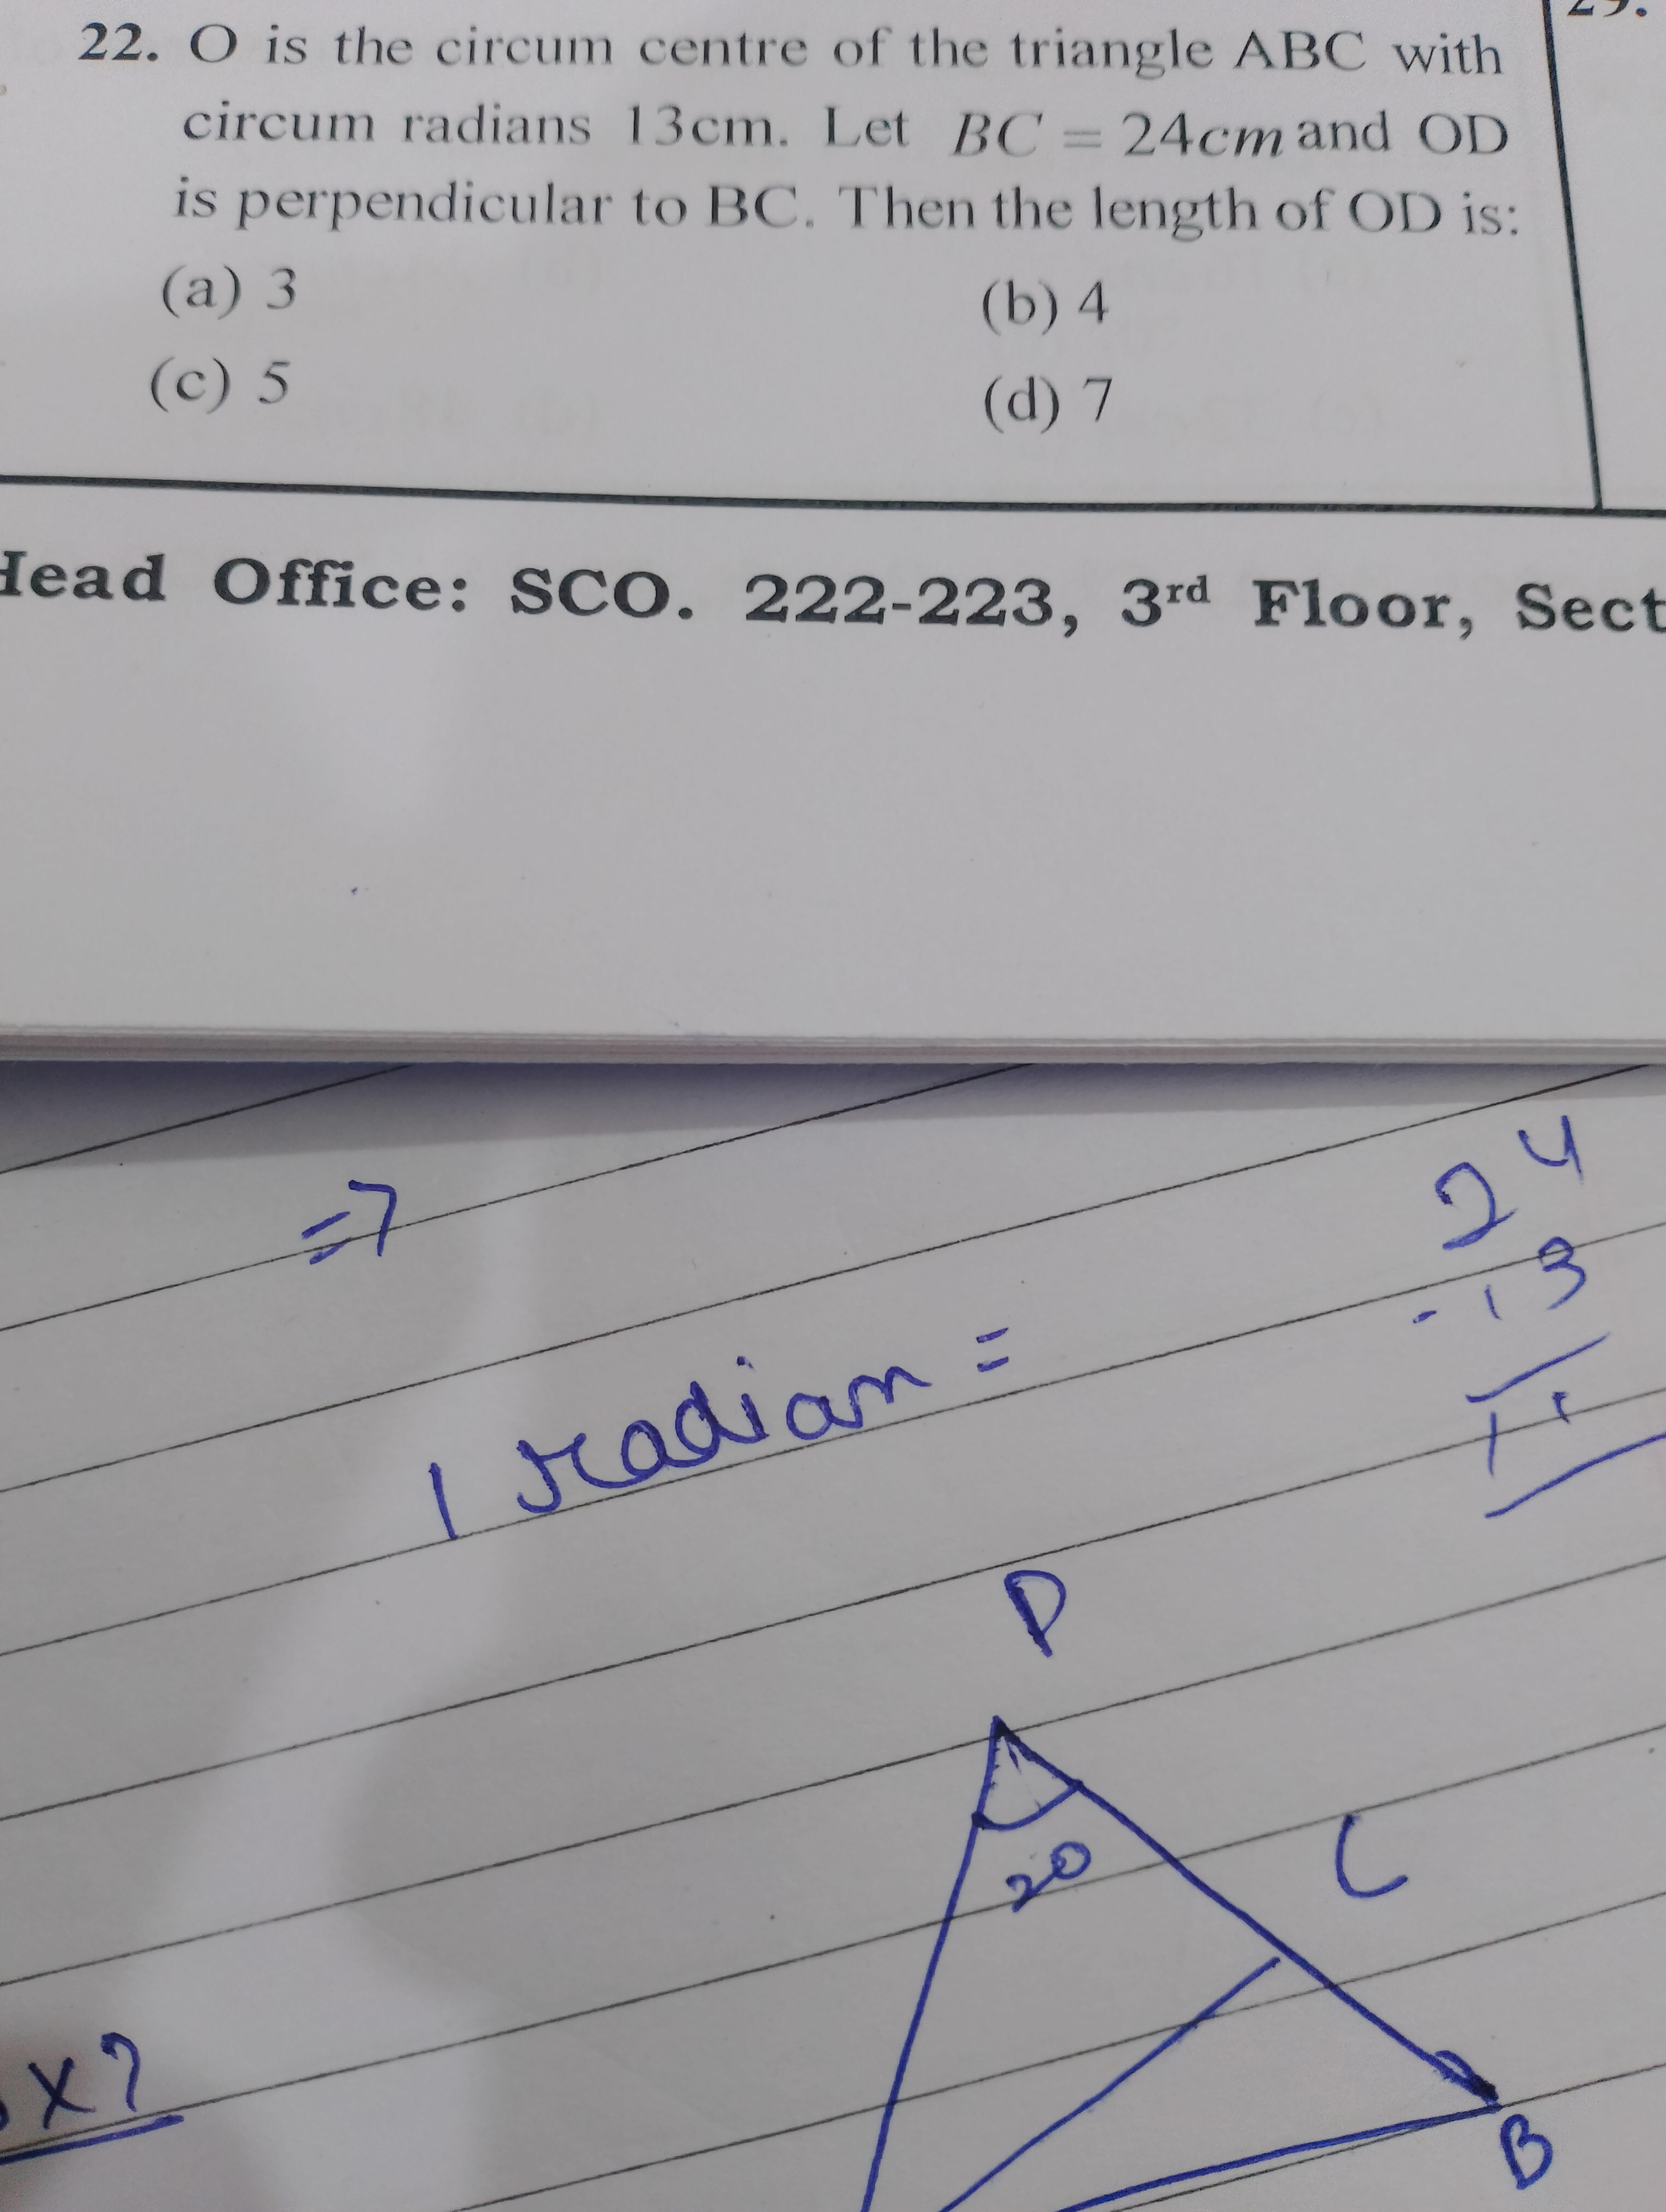 22. O is the circum centre of the triangle ABC with
circum radians 13cm. Let BC = 24cm and OD
is perpendicular to BC. Then the length of OD is:
(a) 3 (b) 4
(c) 5 (d) 7
Head Office: SCO. 222-223, 3rd Floor, Sect
=>
24
- 13
11
1 radian =
P
20
C
x?
B